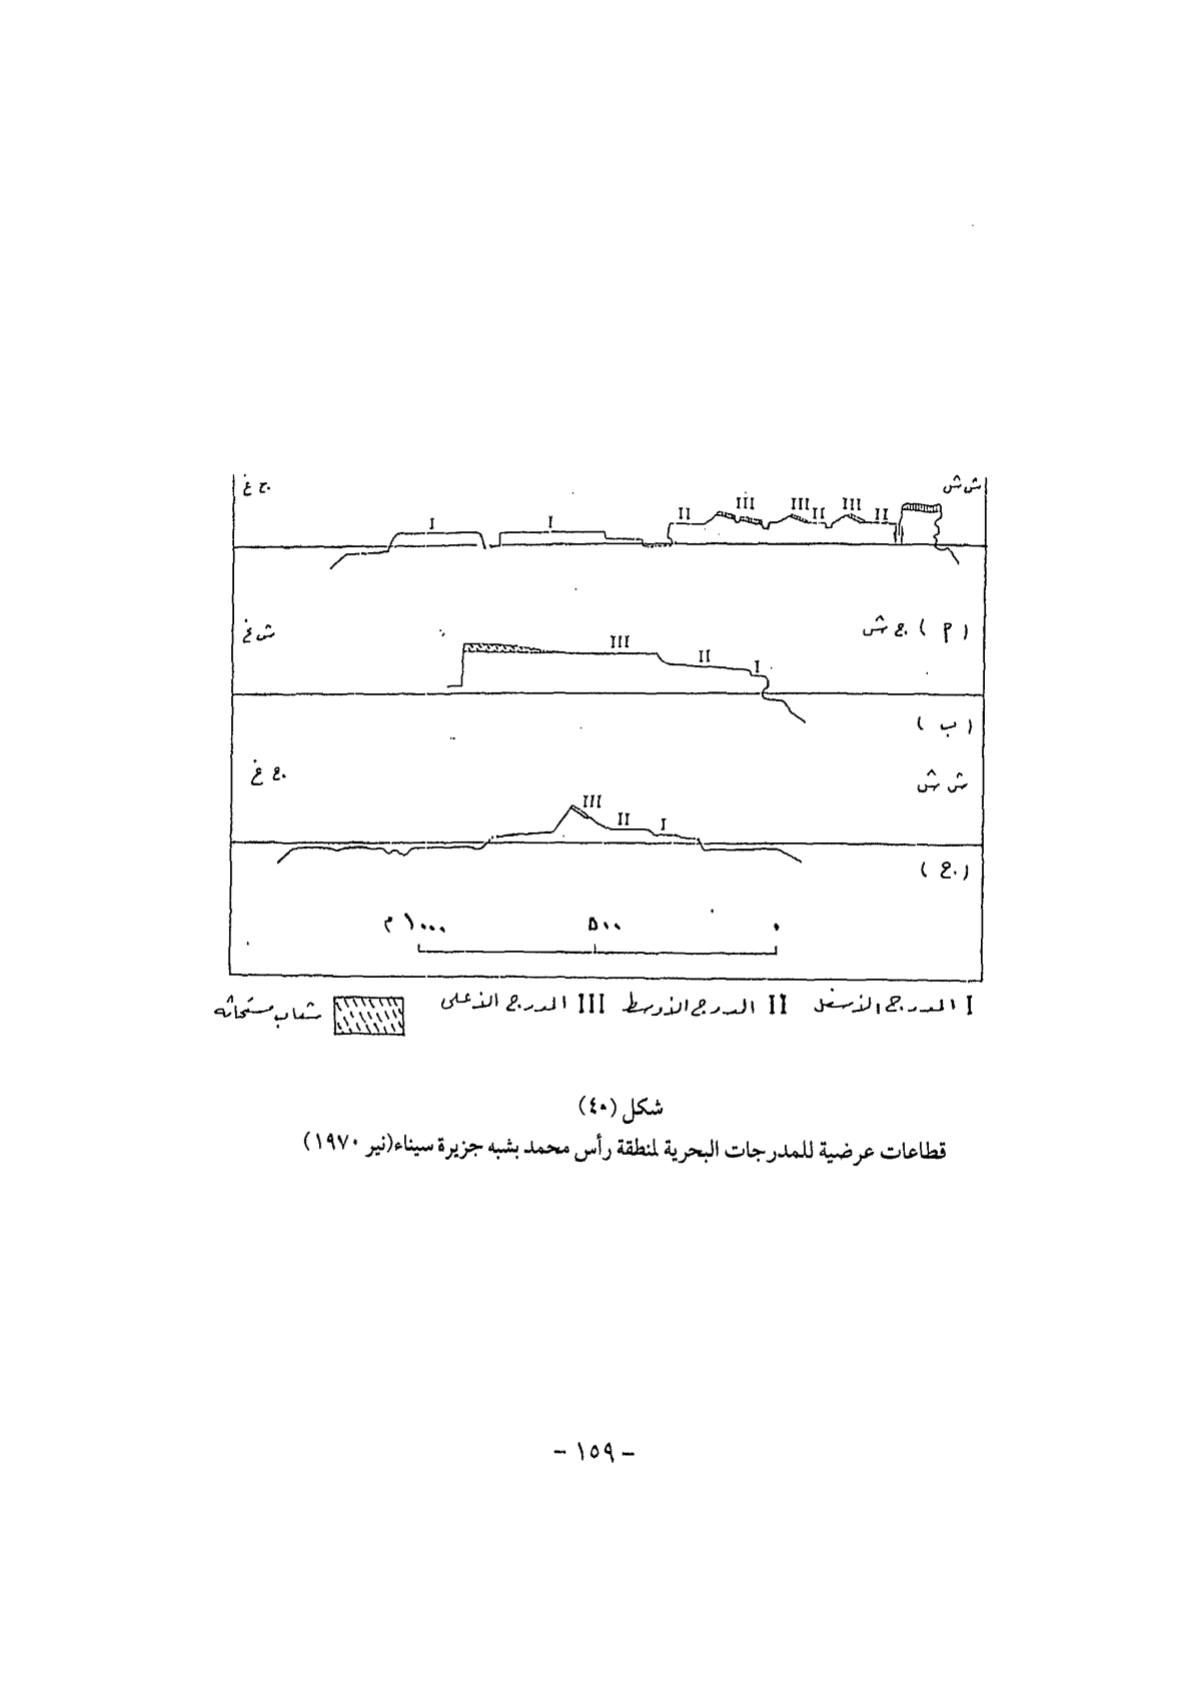 ش ش ج غ
III III III
II II II
I I
(م) ج ش ش غ
III
II
I
(ب)
ش ش ج غ
III
II
I
(ج)
٠ ٥٠٠ ١٠٠٠ م
I المدرج الأسفل II المدرج الأوسط III المدرج الأعلى شعاب مستحاثه
شكل (٤٠)
قطاعات عرضية للمدرجات البحرية لمنطقة رأس محمد بشبه جزيرة سيناء(نير ١٩٧٠)
- ١٥٩ -